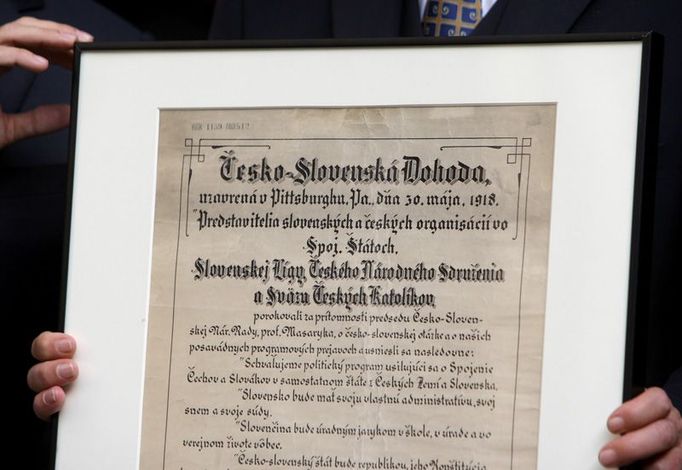 Česko-Slovenská Dohoda,
uzavrená v Pittsburghu, Pa., dňa 30. mája, 1918.
Predstavitelia slovenských a českých organisácií vo
Spoj. Štátoch,
Slovenskej Ligy, Českého Národného Sdruženia
a Sväzu Českých Katolíkov,
porokovali za prítomnosti predsedu Česko-Sloven-
skej Nár. Rady, prof. Masaryka, o česko-slovenskej otázke a o našich
posavádnych programových prejavoch a usniesli sa nasledovne:
"Schvaľujeme politický program usilujúci sa o Spojenie
Čechov a Slovákov v samostatnom štáte z Českých Zemí a Slovenska.
"Slovensko bude mať svoju vlastnú administratívu, svoj
snem a svoje súdy.
"Slovenčina bude úradným jazykom v škole, v úrade a vo
verejnom živote vôbec.
"Česko-slovenský štát bude republikou, jeho Konštitúcia